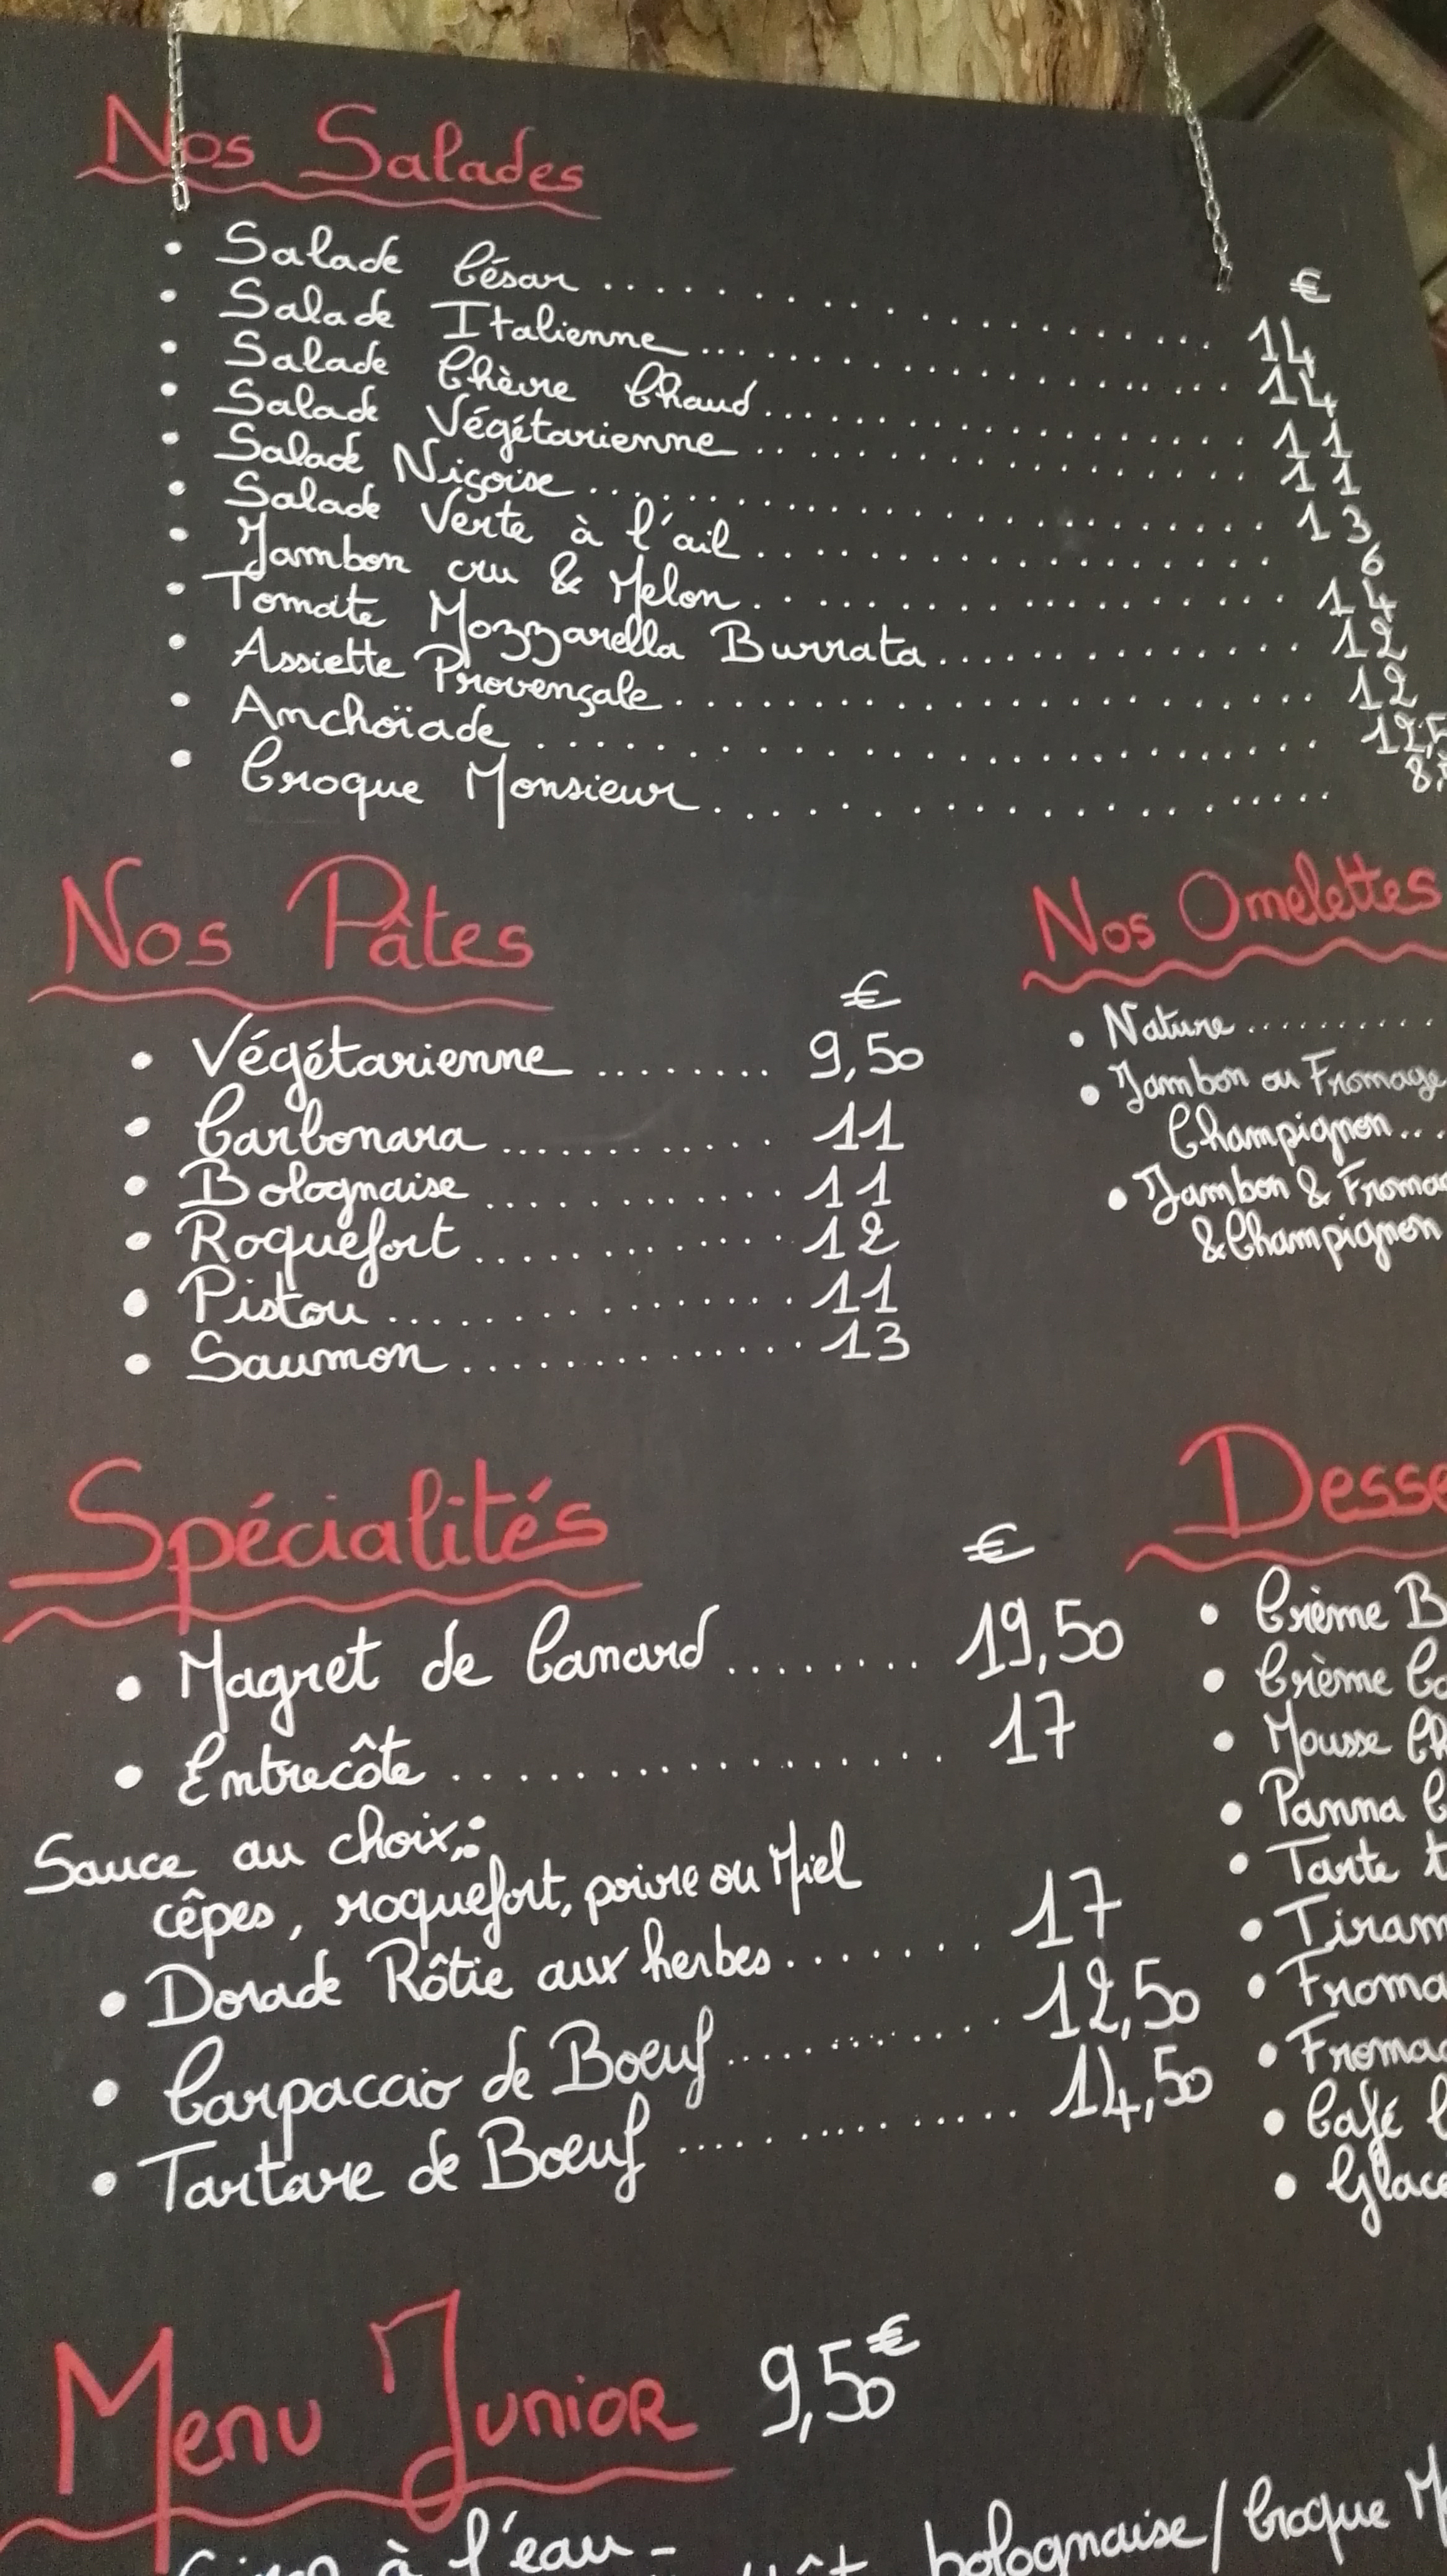 Nos Salades
€
• Salade César .......... 14
• Salade Italienne .......... 14
• Salade Chèvre Chaud .......... 11
• Salade Végétarienne .......... 11
• Salade Niçoise .......... 13
• Salade Verte à l'ail .......... 6
• Jambon cru & Melon .......... 14
• Tomate Mozzarella Burrata .......... 12
• Assiette Provençale .......... 12
• Anchoïade .......... 12,5
• Croque Monsieur .......... 8,
Nos Pâtes
€
• Végétarienne ........ 9,50
• Carbonara .......... 11
• Bolognaise .......... 11
• Roquefort .......... 12
• Pistou .......... 11
• Saumon .......... 13
Nos Omelettes
• Nature ..........
• Jambon ou Fromage
Champignon ...
• Jambon &
& Champignon
Spécialités
€
• Magret de Canard ........ 19,50
• Entrecôte .......... 17
Sauce au choix:
cêpes, roquefort, poivre ou Miel
• Dorade Rôtie aux herbes ....... 17
• Carpaccio de Boeuf .......... 12,50
• Tartare de Boeuf .......... 14,50
• Crème
• Crème
• Mousse
• Panna
• Tarte
• Café
Menu Junior 9,50€
à l'eau -
bolognaise / Croque